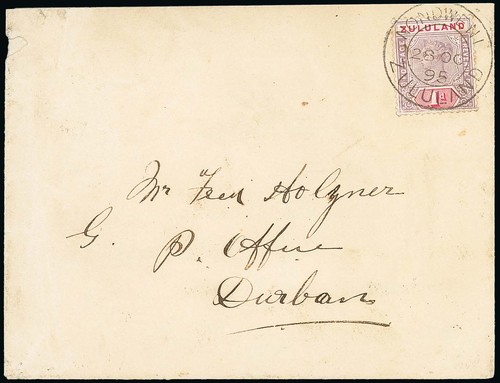 ZULULAND
NONDWENI
28 OC
95
ZULULAND
POSTAGE
1D
Mr Fred Holzner
G. P. Office
Durban